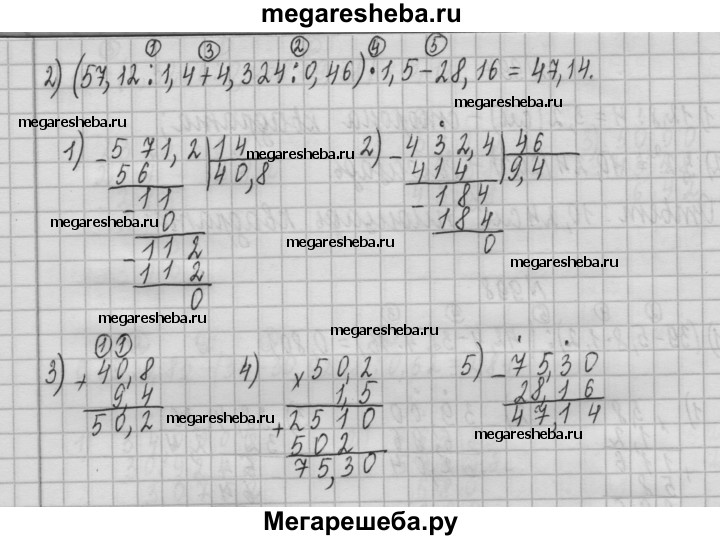 megaresheba.ru
① ③ ② ④ ⑤
2) (57,12 : 1,4 + 4,324 : 0,46) · 1,5 − 28,16 = 47,14.
megaresheba.ru
megaresheba.ru
1) − 571,2 | 14
56 | 40,8
− 11
0
− 112
112
0
megaresheba.ru
megaresheba.ru
2) − 432,4 | 46
414 | 9,4
− 184
184
0
megaresheba.ru
megaresheba.ru
megaresheba.ru
megaresheba.ru
① ①
3) + 40,8
9,4
50,2
megaresheba.ru
4) × 50,2
1,5
+ 2510
502
75,30
5) − 75,30
28,16
47,14
megaresheba.ru
Мегарешеба.ру